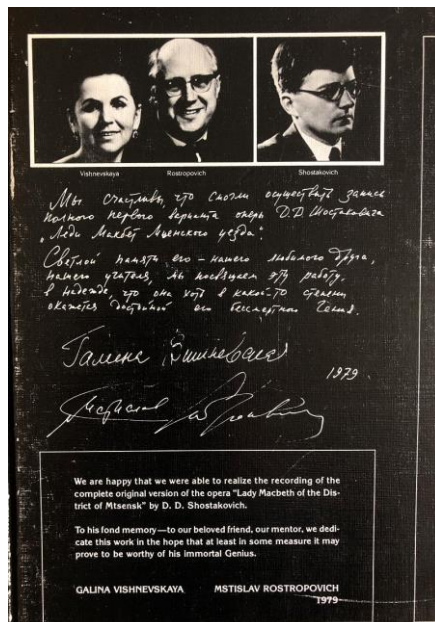 Vishnevskaya
Rostropovich
Shostakovich
Мы счастливы, что смогли осуществить запись
полного первого варианта оперы Д.Д. Шостаковича
„Леди Макбет Мценского уезда".
Светлой памяти его – нашего любимого друга,
нашего учителя, мы посвящаем эту работу.
в надежде, что она хоть в какой-то степени
окажется достойной его бессмертного Гения.
Галина Вишневская
1979.
Мстислав Ростропович
We are happy that we were able to realize the recording of the
complete original version of the opera "Lady Macbeth of the Dis-
trict of Mtsensk" by D. D. Shostakovich.
To his fond memory—to our beloved friend, our mentor, we dedi-
cate this work in the hope that at least in some measure it may
prove to be worthy of his immortal Genius.
GALINA VISHNEVSKAYA MSTISLAV ROSTROPOVICH
1979